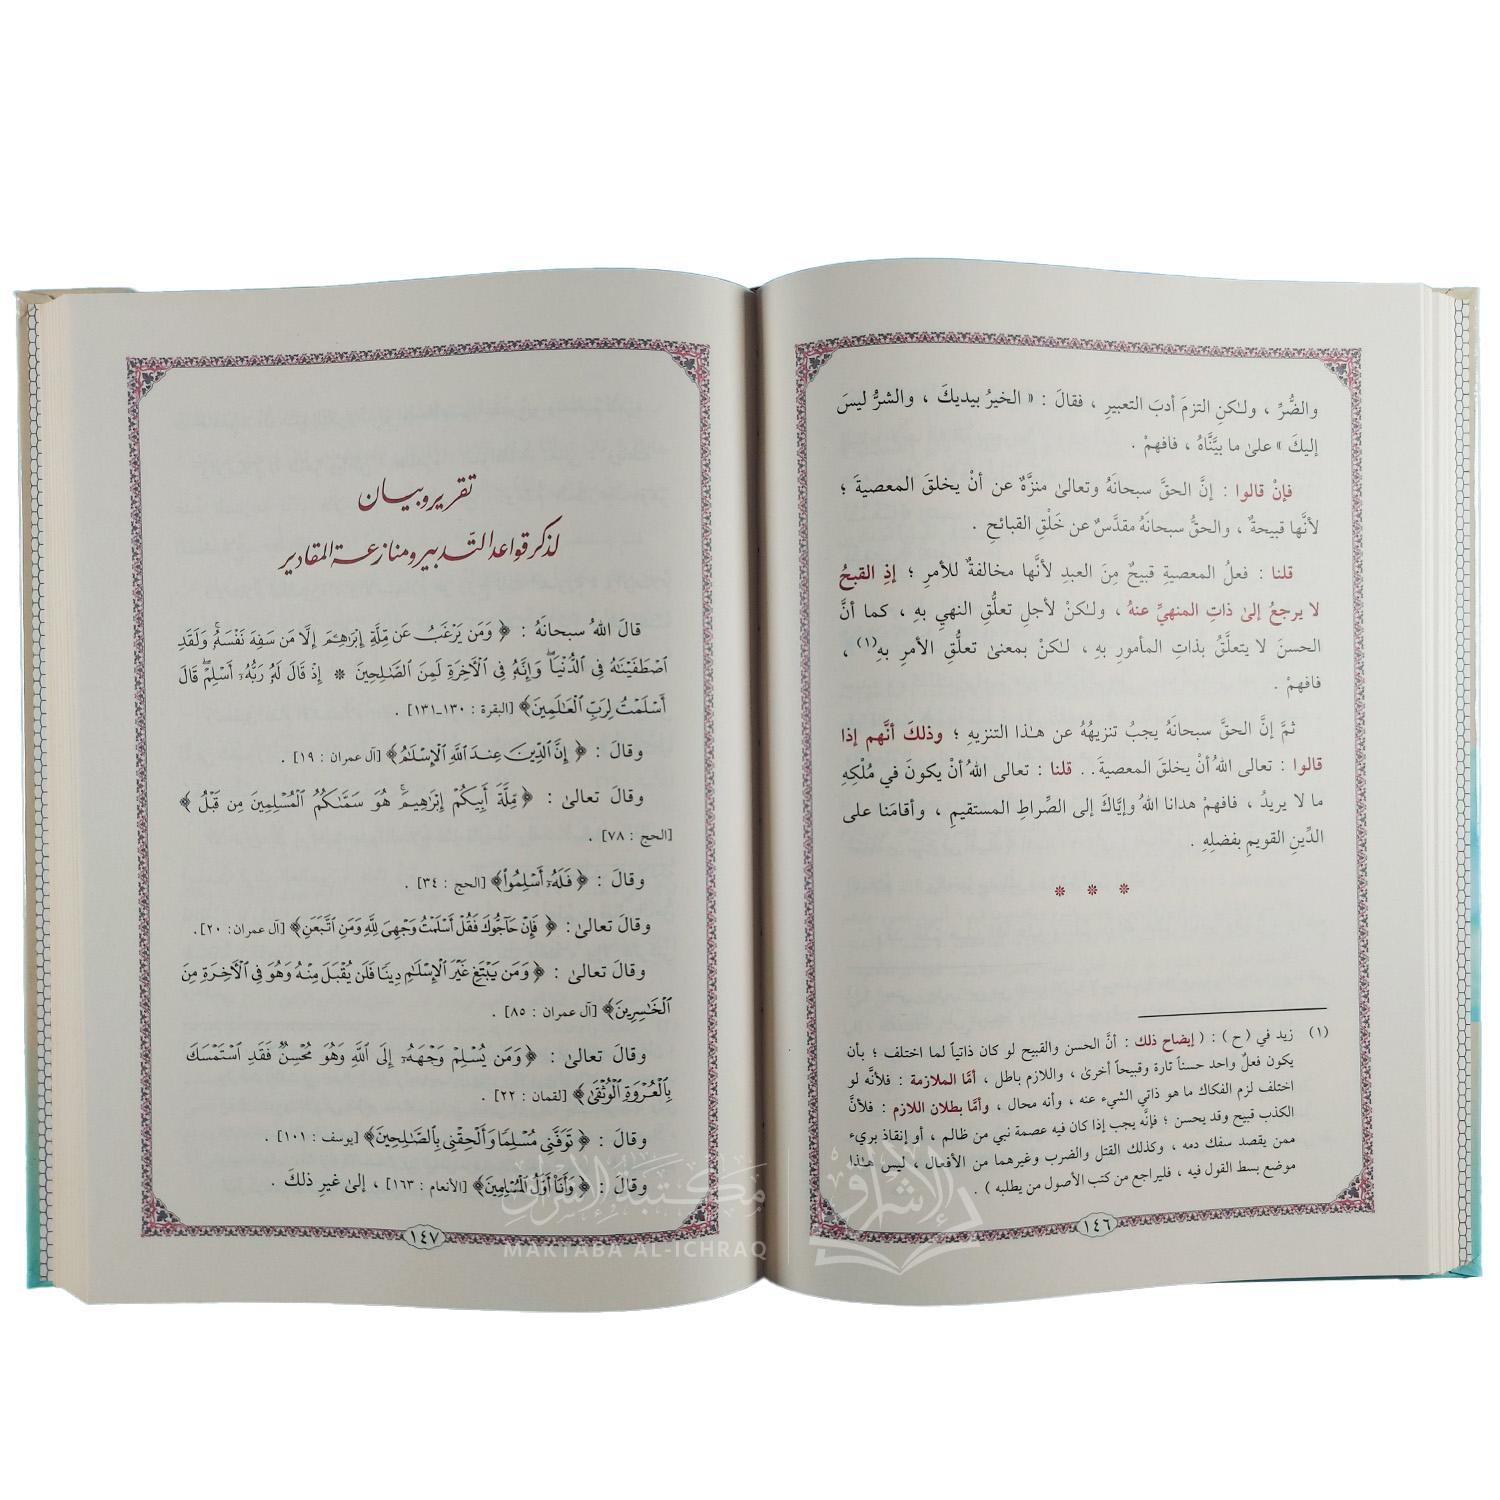 والضُّرِّ ، ولـٰكنِ التزمَ أدبَ التعبيرِ ، فقالَ : « الخيرُ بيديكَ ، والشرُّ ليسَ
إليكَ » علىٰ ما بيَّنَّاهُ ، فافهمْ .
فإنْ قالوا : إنَّ الحقَّ سبحانَهُ وتعالىٰ منزَّهٌ عن أنْ يخلقَ المعصيةَ ؛
لأنَّها قبيحةٌ ، والحقُّ سبحانَهُ مقدَّسٌ عن خَلْقِ القبائحِ .
قلنا : فعلُ المعصيةِ قبيحٌ مِنَ العبدِ لأنَّها مخالفةٌ للأمرِ ؛ إذِ القبحُ
لا يرجعُ إلىٰ ذاتِ المنهيِّ عنهُ ، ولـٰكنْ لأجلِ تعلُّقِ النهيِ بهِ ، كما أنَّ
الحسنَ لا يتعلَّقُ بذاتِ المأمورِ بهِ ، لـٰكنْ بمعنىٰ تعلُّقِ الأمرِ بهِ(١) ،
فافهمْ .
ثمَّ إنَّ الحقَّ سبحانَهُ يجبُ تنزيهُهُ عن هـٰذا التنزيهِ ؛ وذلكَ أنَّهم إذا
قالوا : تعالى اللهُ أنْ يخلقَ المعصيةَ.. قلنا : تعالى اللهُ أنْ يكونَ في مُلْكِهِ
ما لا يريدُ ، فافهمْ هدانا اللهُ وإيَّاكَ إلى الصِّراطِ المستقيمِ ، وأقامَنا على
الدِّينِ القويمِ بفضلِهِ .
* * *
(١) زيد في (ح) : ( إيضاح ذلك : أنَّ الحسن والقبيح لو كان ذاتياً لما اختلف ؛ بأن
يكون فعلٌ واحد حسناً تارة وقبيحاً أخرىٰ ، واللازم باطل ، أمَّا الملازمة : فلأنَّه لو
اختلف لزم الفكاك ما هو ذاتي الشيء عنه ، وأنه محال ، وأمَّا بطلان اللازم : فلأنَّ
الكذب قبيح وقد يحسن ؛ فإنَّه يجب إذا كان فيه عصمة نبي من ظالم ، أو إنقاذ بريء
ممن يقصد سفك دمه ، وكذلك القتل والضرب وغيرهما من الأفعال ، ليس هـٰذا
موضع بسط القول فيه ، فليراجع من كتب الأصول من يطلبه ) .
١٤٦
تقرير وبيان
لذكر قواعد التدبير ومنازعة المقادير
قالَ اللهُ سبحانَهُ : ﴿ وَمَن يَرْغَبُ عَن مِّلَّةِ إِبْرَٰهِـۧمَ إِلَّا مَن سَفِهَ نَفْسَهُۥ ۚ وَلَقَدِ
ٱصْطَفَيْنَـٰهُ فِى ٱلدُّنْيَا ۖ وَإِنَّهُۥ فِى ٱلْـَٔاخِرَةِ لَمِنَ ٱلصَّـٰلِحِينَ * إِذْ قَالَ لَهُۥ رَبُّهُۥٓ أَسْلِمْ ۖ قَالَ
أَسْلَمْتُ لِرَبِّ ٱلْعَـٰلَمِينَ﴾ [البقرة : ١٣٠ـ١٣١] .
وقالَ : ﴿ إِنَّ ٱلدِّينَ عِندَ ٱللَّهِ ٱلْإِسْلَـٰمُ﴾ [آل عمران : ١٩] .
وقالَ تعالىٰ : ﴿ مِّلَّةَ أَبِيكُمْ إِبْرَٰهِيمَ ۚ هُوَ سَمَّىٰكُمُ ٱلْمُسْلِمِينَ مِن قَبْلُ ﴾
[الحج : ٧٨] .
وقالَ : ﴿ فَلَهُۥٓ أَسْلِمُوا۟﴾ [الحج : ٣٤] .
وقالَ تعالىٰ : ﴿ فَإِنْ حَآجُّوكَ فَقُلْ أَسْلَمْتُ وَجْهِىَ لِلَّهِ وَمَنِ ٱتَّبَعَنِ﴾ [آل عمران: ٢٠] .
وقالَ تعالىٰ : ﴿ وَمَن يَبْتَغِ غَيْرَ ٱلْإِسْلَـٰمِ دِينًا فَلَن يُقْبَلَ مِنْهُ وَهُوَ فِى ٱلْـَٔاخِرَةِ مِنَ
ٱلْخَـٰسِرِينَ﴾ [آل عمران : ٨٥] .
وقالَ تعالىٰ : ﴿ وَمَن يُسْلِمْ وَجْهَهُۥٓ إِلَى ٱللَّهِ وَهُوَ مُحْسِنٌ فَقَدِ ٱسْتَمْسَكَ
بِٱلْعُرْوَةِ ٱلْوُثْقَىٰ﴾ [لقمان : ٢٢] .
وقالَ : ﴿ تَوَفَّنِى مُسْلِمًا وَأَلْحِقْنِى بِٱلصَّـٰلِحِينَ﴾ [يوسف : ١٠١] .
وقالَ : ﴿ وَأَنَا۠ أَوَّلُ ٱلْمُسْلِمِينَ﴾ [الأنعام : ١٦٣] ، إلىٰ غيرِ ذلكَ .
١٤٧
مكتبة الإشراق
MAKTABA AL-ICHRAQ
الإشراق